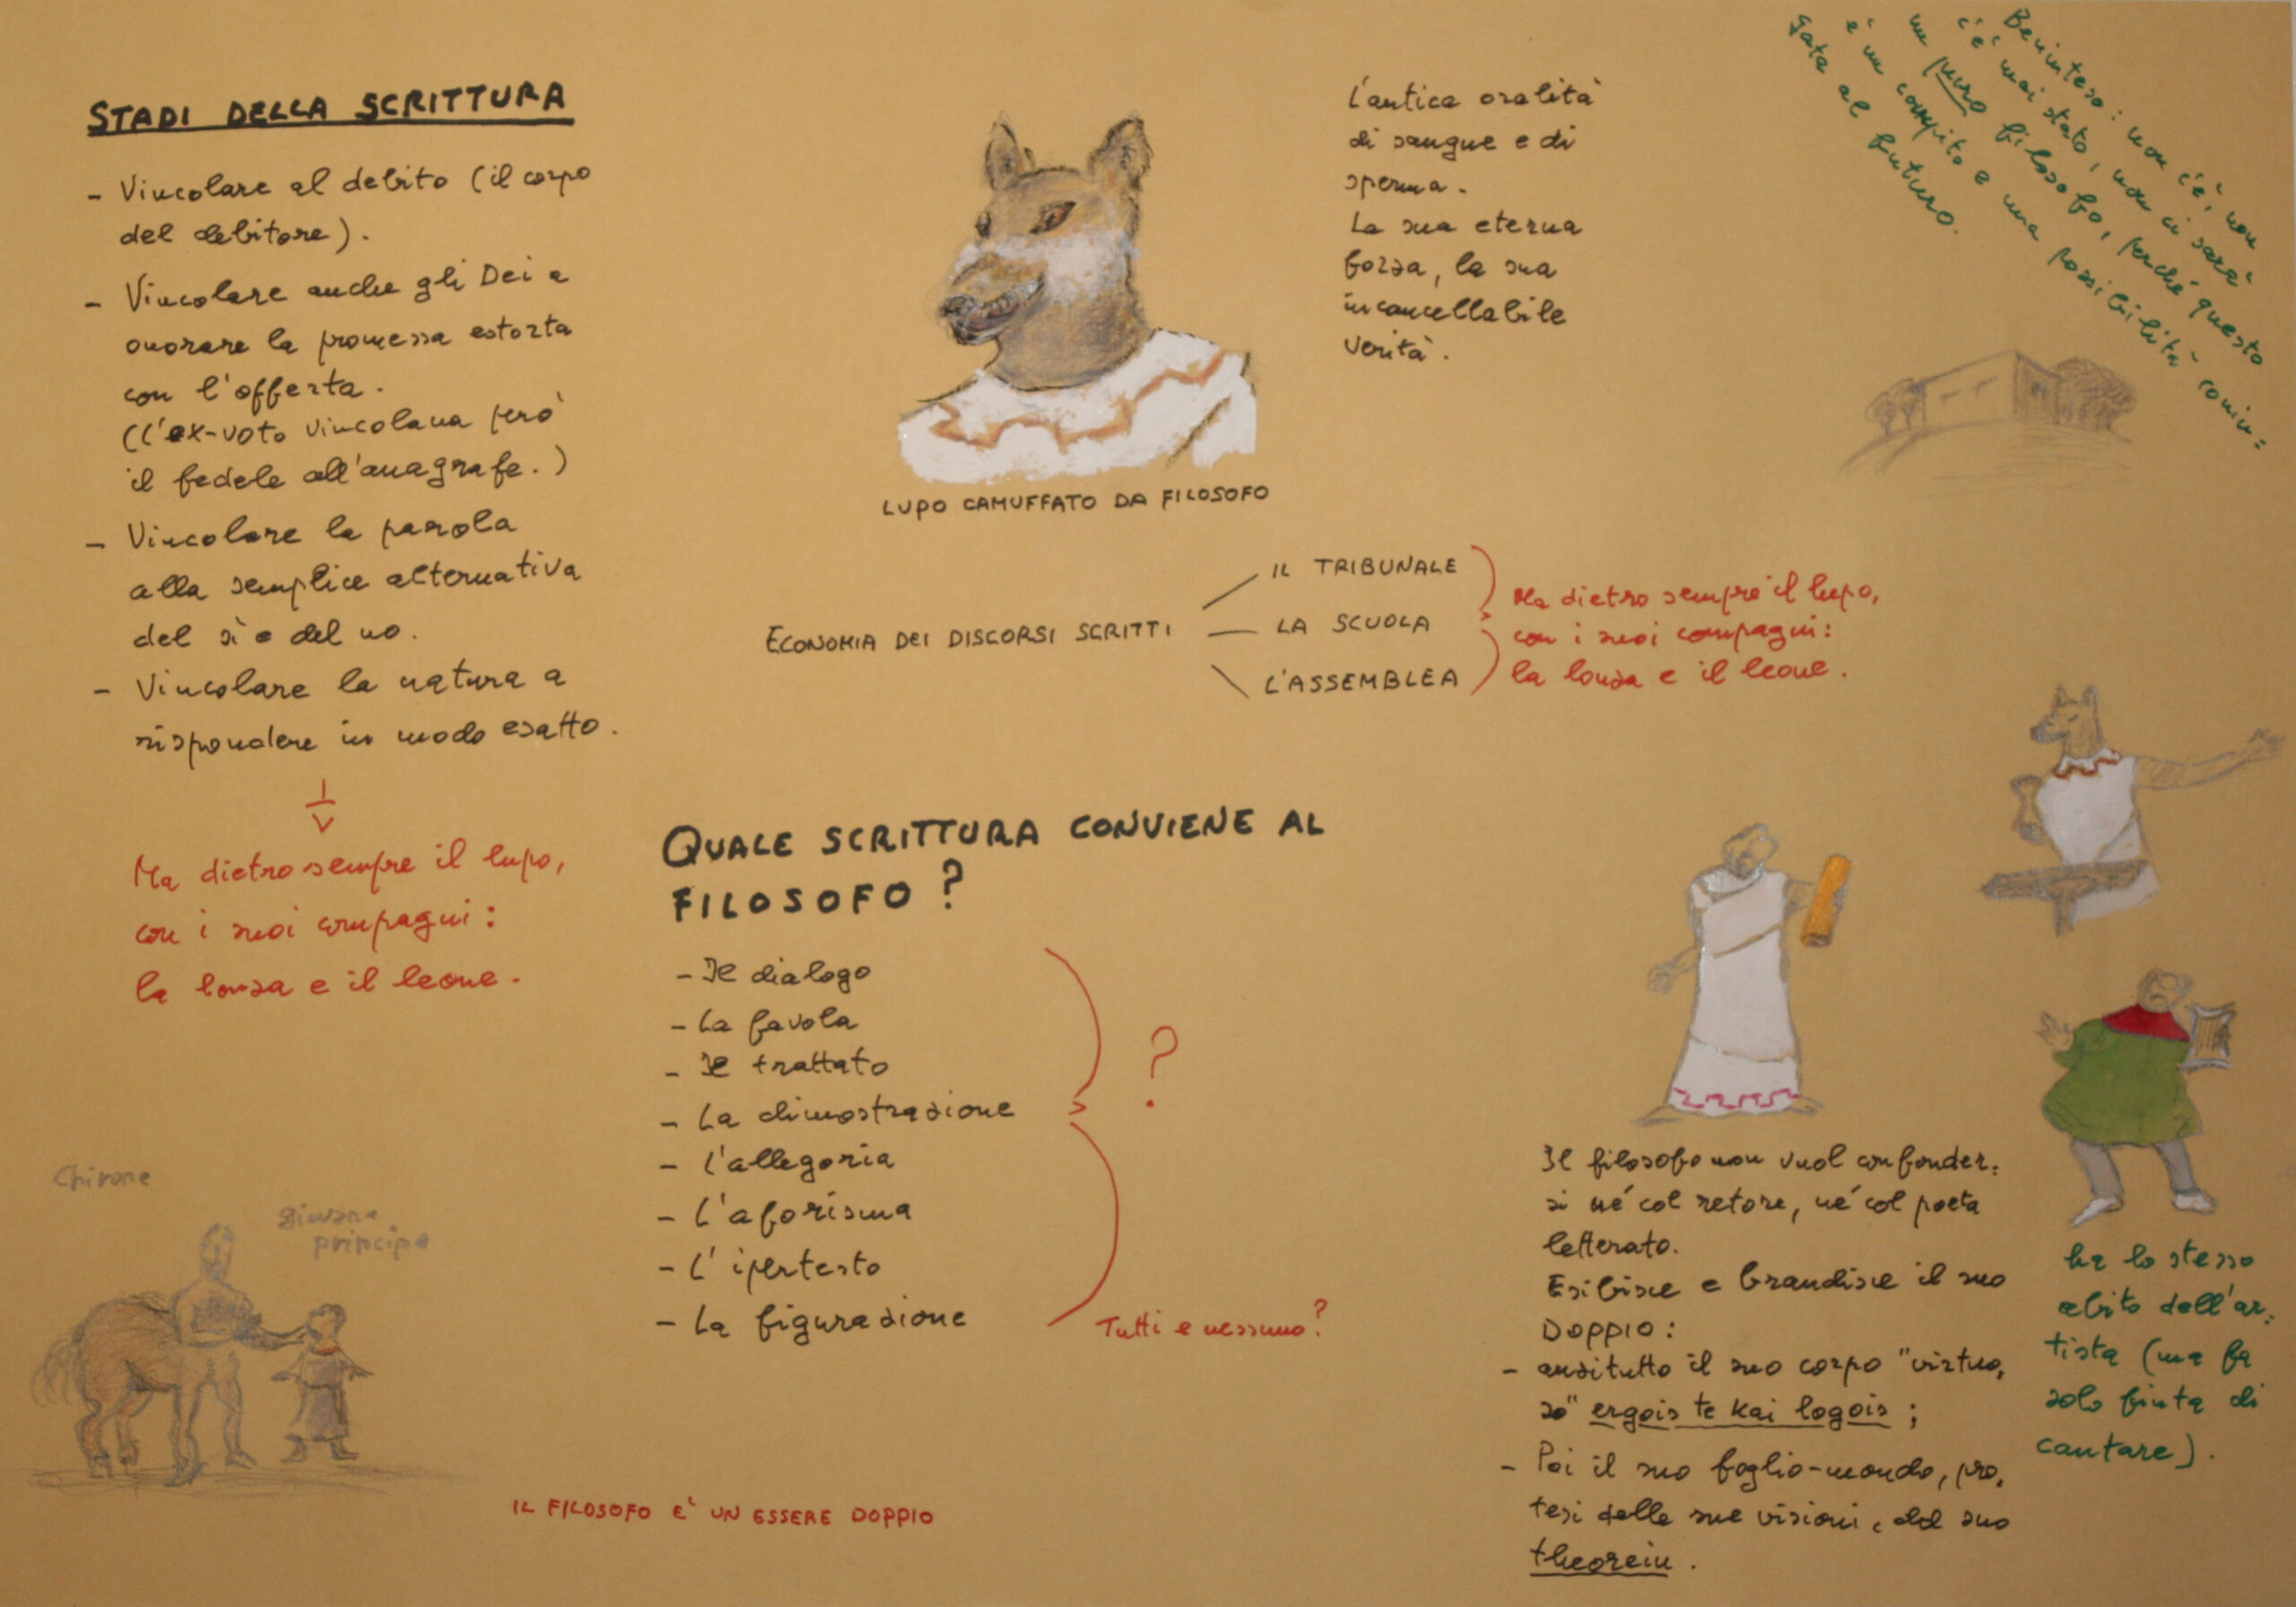 STADI DELLA SCRITTURA
- Vincolare al debito (il corpo
del debitore).
- Vincolare anche gli Dei a
onorare la promessa estorta
con l'offerta.
(l'ex-voto vincolava però
il fedele all'anagrafe.)
- Vincolare la parola
alla semplice alternativa
del sì e del no.
- Vincolare la natura a
rispondere in modo esatto.
Ma dietro sempre il lupo,
con i suoi compagni:
la lonza e il leone.
Chirone
giovane
principe
LUPO CAMUFFATO DA FILOSOFO
L'antica oralità
di sangue e di
sperma.
La sua eterna
forza, la sua
incancellabile
verità.
Beninteso: non c'è, non
c'è mai stato, non ci sarà
un puro filosofo, perché questo
è un compito e una possibilità coniu=
gata al futuro.
ECONOMIA DEI DISCORSI SCRITTI
IL TRIBUNALE
LA SCUOLA
L'ASSEMBLEA
Ma dietro sempre il lupo,
con i suoi compagni:
la lonza e il leone.
QUALE SCRITTURA CONVIENE AL
FILOSOFO?
- Il dialogo
- La favola
- Il trattato
- La dimostrazione
- L'allegoria
- L'aforisma
- L'ipertesto
- La figurazione
?
Tutti e nessuno?
IL FILOSOFO E' UN ESSERE DOPPIO
Il filosofo non vuol confonder=
si né col retore, né col poeta
letterato.
Esibisce e brandisce il suo
DOPPIO:
- anzitutto il suo corpo "virtuo=
so" ergois te kai logois;
- Poi il suo foglio-mondo, pro=
tesi delle sue visioni, del suo
theorein.
ha lo stesso
abito dell'ar=
tista (ma fa
solo finta di
cantare).